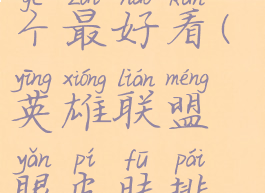 gè zuì hǎo kàn
个最好看(
yīng xióng lián méng
英雄联盟
yǎn pí fū pái
眼皮肤排